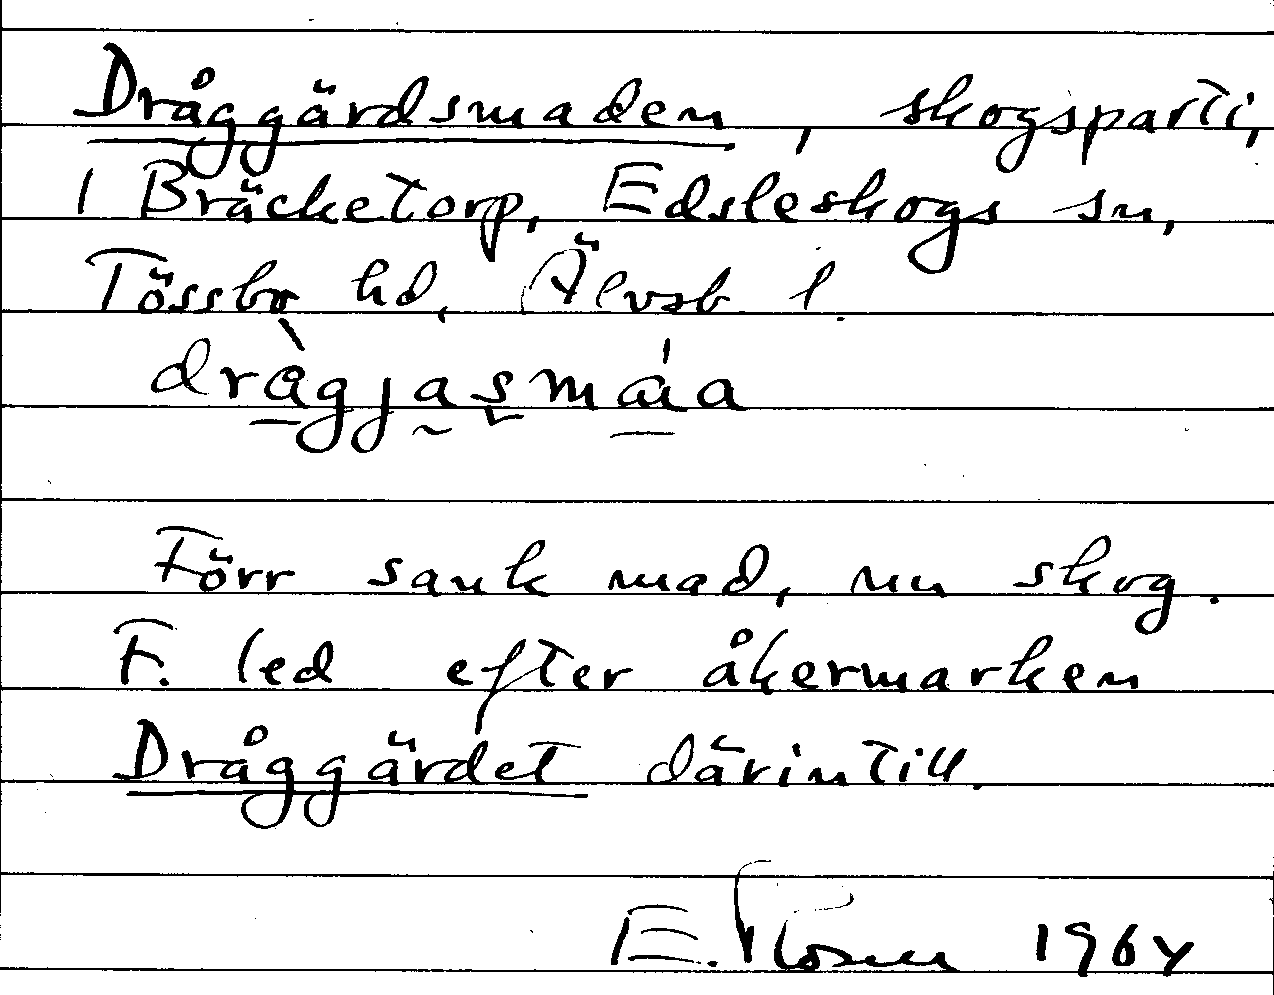 Dråggärdsmaden, skogsparti,
i Bräcketorp, Edsleskogs sn,
Tössbo hd, Älvsb l.
dràgjasmáa
Förr sank mad, nu skog.
F. led efter åkermarken
Dråggärdet därintill.
E. 1964